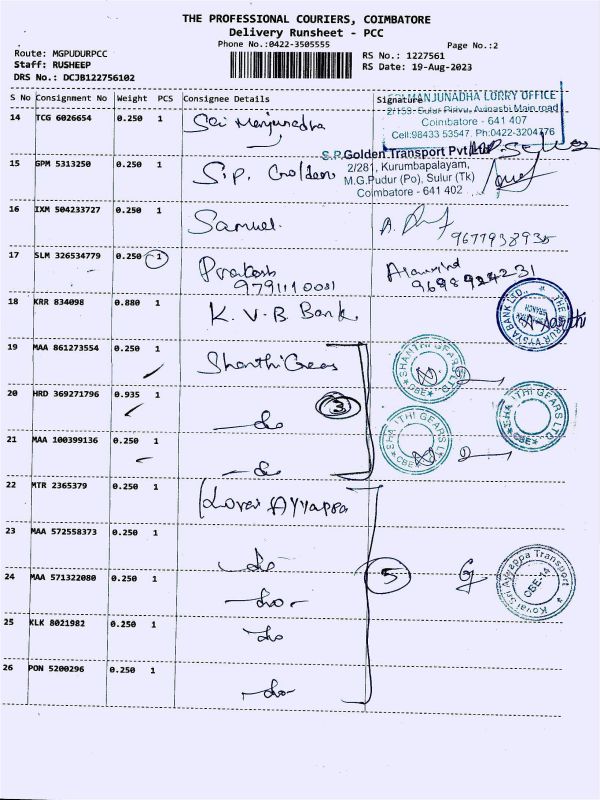 THE PROFESSIONAL COURIERS, COIMBATORE
Delivery Runsheet - PCC
Phone No.:0422-3505555
Page No.:2
Route: MGPUDURPCC
RS No.: 1227561
Staff: RUSHEEP
RS Date: 19-Aug-2023
DRS No.: DCJB122756102
S No Consignment No Weight PCS Consignee Details Signature
MANJUNADHA LORRY OFFICE
Avinashi Main road
Coimbatore - 641 407
Cell:98433 53547. Ph:0422-3204776
14 TCG 6026654 0.250 1 Sai Manjunadha
S.P.Golden Transport Pvt
2/281, Kurumbapalayam,
M.G.Pudur (Po), Sulur (Tk)
Coimbatore - 641 402
15 GPM 5313250 0.250 1 S.P. Golden
16 IXM 504233727 0.250 1 Samuel
9677938935
17 SLM 326534779 0.250 1 Prakash
9791110081
Aravind
9698924231
18 KRR 834098 0.880 1 K.V.B Bank
19 MAA 861273554 0.250 1 Shanthi Gears
SHANTHI GEARS LTD
CBE
20 HRD 369271796 0.935 1 do
3
SHANTHI GEARS LTD
CBE
SHANTHI GEARS LTD
CBE
21 MAA 100399136 0.250 1 do
22 MTR 2365379 0.250 1 Kovai Ayyappa
23 MAA 572558373 0.250 1 do
24 MAA 571322080 0.250 1 do
5
Kovai Sri Ayyappa Transport
CBE-14
25 KLK 8021982 0.250 1 do
26 PON 5200296 0.250 1 do